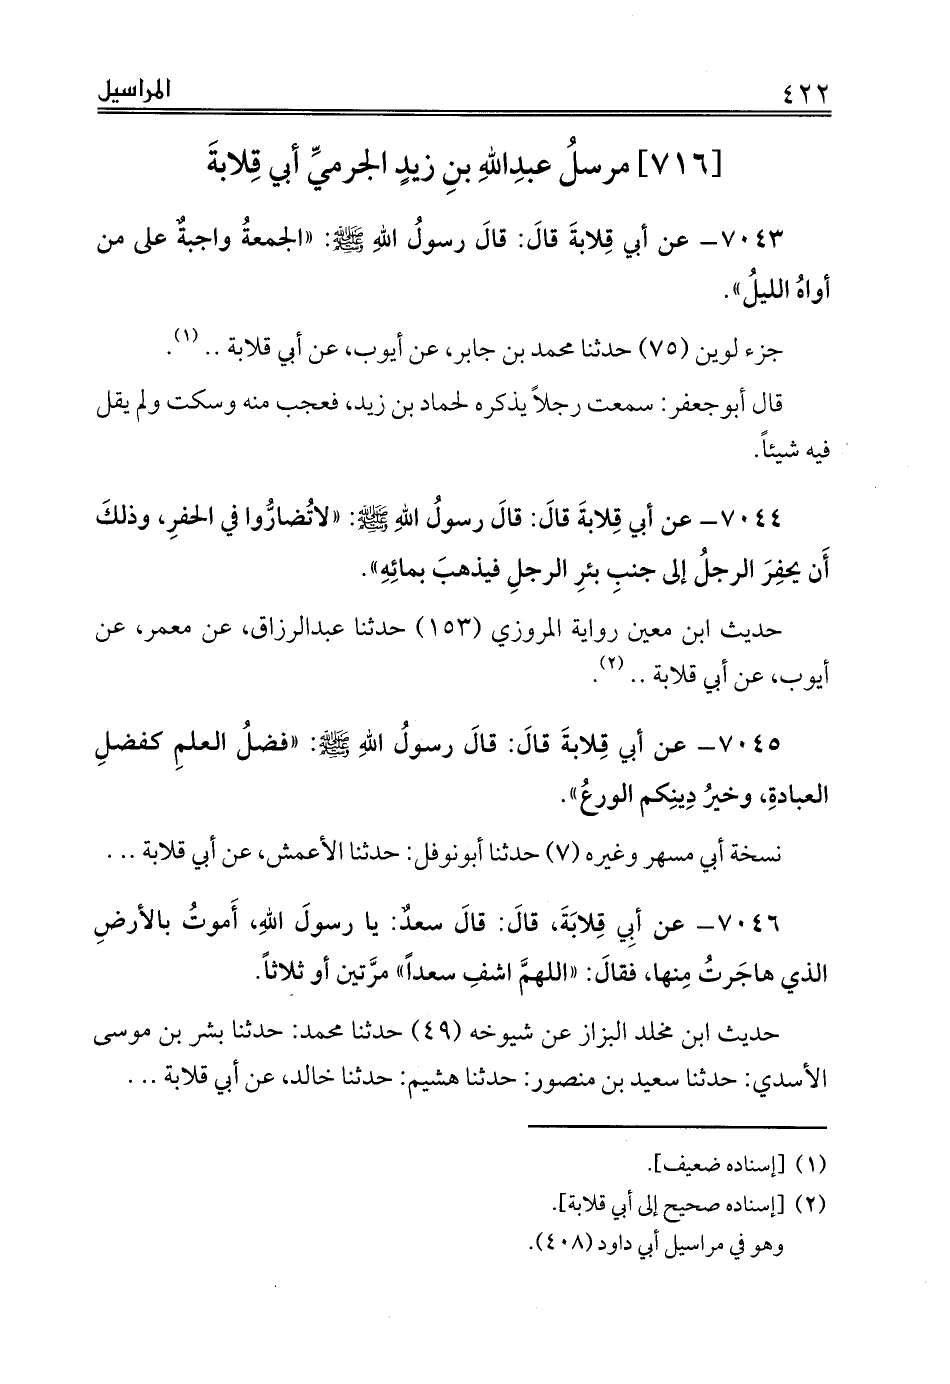 ٤٢٢ المراسيل
[٧١٦] مرسلُ عبدِاللهِ بنِ زيدٍ الجرميِّ أبي قِلابةَ
٧٠٤٣- عن أبي قِلابةَ قالَ: قالَ رسولُ اللهِ ﷺ: «الجمعةُ واجبةٌ على من
أواهُ الليلُ».
جزء لوين (٧٥) حدثنا محمد بن جابر، عن أيوب، عن أبي قلابة .. (١).
قال أبوجعفر: سمعت رجلاً يذكره لحماد بن زيد، فعجب منه وسكت ولم يقل
فيه شيئاً.
٧٠٤٤- عن أبي قِلابةَ قالَ: قالَ رسولُ اللهِ ﷺ: «لاتُضارُّوا في الحفرِ، وذلكَ
أَن يحفِرَ الرجلُ إلى جنبِ بئرِ الرجلِ فيذهبَ بمائِهِ».
حديث ابن معين رواية المروزي (١٥٣) حدثنا عبدالرزاق، عن معمر، عن
أيوب، عن أبي قلابة .. (٢).
٧٠٤٥- عن أبي قِلابةَ قالَ: قالَ رسولُ اللهِ ﷺ: «فضلُ العلمِ كفضلِ
العبادةِ، وخيرُ دِينِكم الورعُ».
نسخة أبي مسهر وغيره (٧) حدثنا أبونوفل: حدثنا الأعمش، عن أبي قلابة ...
٧٠٤٦- عن أَبي قِلابَةَ، قالَ: قالَ سعدٌ: يا رسولَ اللهِ، أَموتُ بالأرضِ
الذي هاجَرتُ مِنها، فقالَ: «اللهمَّ اشفِ سعداً» مرَّتين أو ثلاثاً.
حديث ابن مخلد البزاز عن شيوخه (٤٩) حدثنا محمد: حدثنا بشر بن موسى
الأسدي: حدثنا سعيد بن منصور: حدثنا هشيم: حدثنا خالد، عن أبي قلابة ...
(١) [إسناده ضعيف].
(٢) [إسناده صحيح إلى أبي قلابة].
وهو في مراسيل أبي داود (٤٠٨).